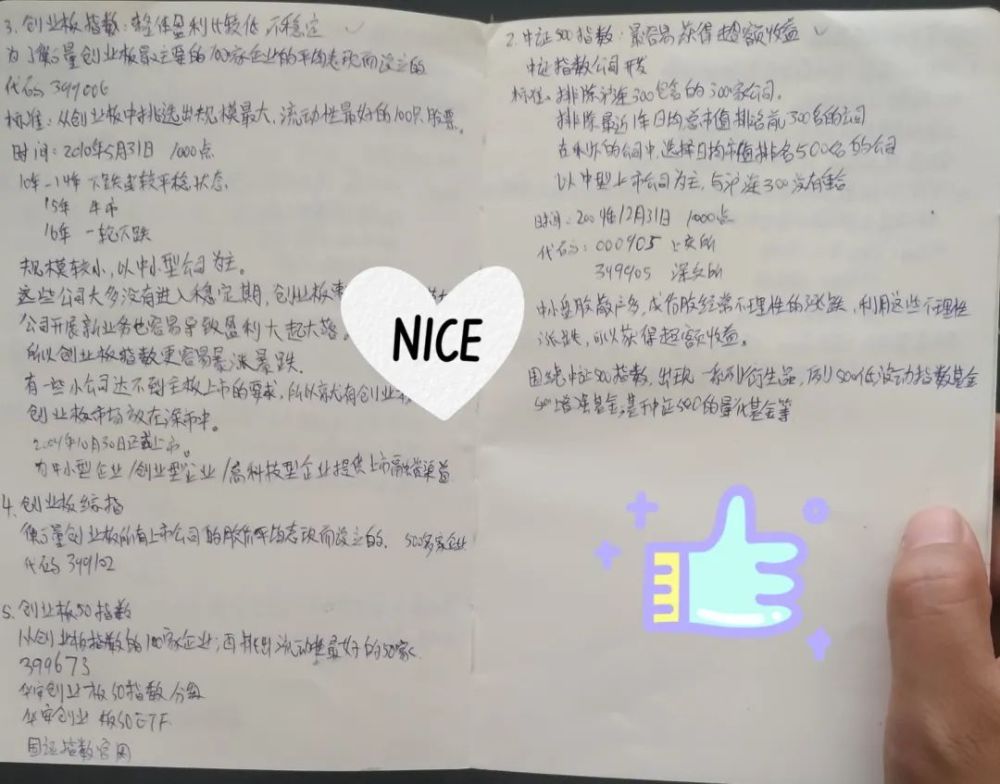 3. 创业板指数: 整体盈利比较低 不稳定
为了衡量创业板最主要的100家企业的平均表现而设立的
代码 399006
标准: 从创业板中挑选出规模最大, 流动性最好的100只股票。
时间: 2010年5月31日 1000点
10年-14年 下跌 较平稳状态
15年 牛市
16年 一轮下跌
规模较小, 以中小型公司为主。
这些公司大多没有进入稳定期, 创业板
公司开展新业务也容易导致盈利大起大落。
所以创业板指数更容易暴涨暴跌.
有一些小公司达不到主板上市的要求, 所以就有创业
创业板市场放在深市中。
10月30日正式上市。
为中小型企业/创业型企业/高科技型企业提供上市融资渠道
4. 创业板综指
衡量创业板所有上市公司的股价平均表现而设立的. 500多家企业
代码 399102
5. 创业板50指数
从创业板指数的100家企业; 再挑出流动性最好的50家
399673
华安创业板50指数分级
华安创业板50ETF
国证指数官网
2. 中证500指数: 最容易获得超额收益
中证指数公司开发
标准: 排除沪深300包含的300家公司.
排除最近1年日均总市值排名前300名的公司
在剩下的公司中, 选择日均市值排名500名的公司
以中型上市公司为主, 与沪深300没有重合
时间: 2004年12月31日 1000点
代码: 000905 上交所
399905 深交所
中小盘股散户多, 成份股经常不理性的涨跌, 利用这些不理性
涨跌, 可以获得超额收益。
围绕中证500指数, 出现一系列衍生品, 例 500低波动指数基金
500增强基金, 基于中证500的量化基金等
NICE